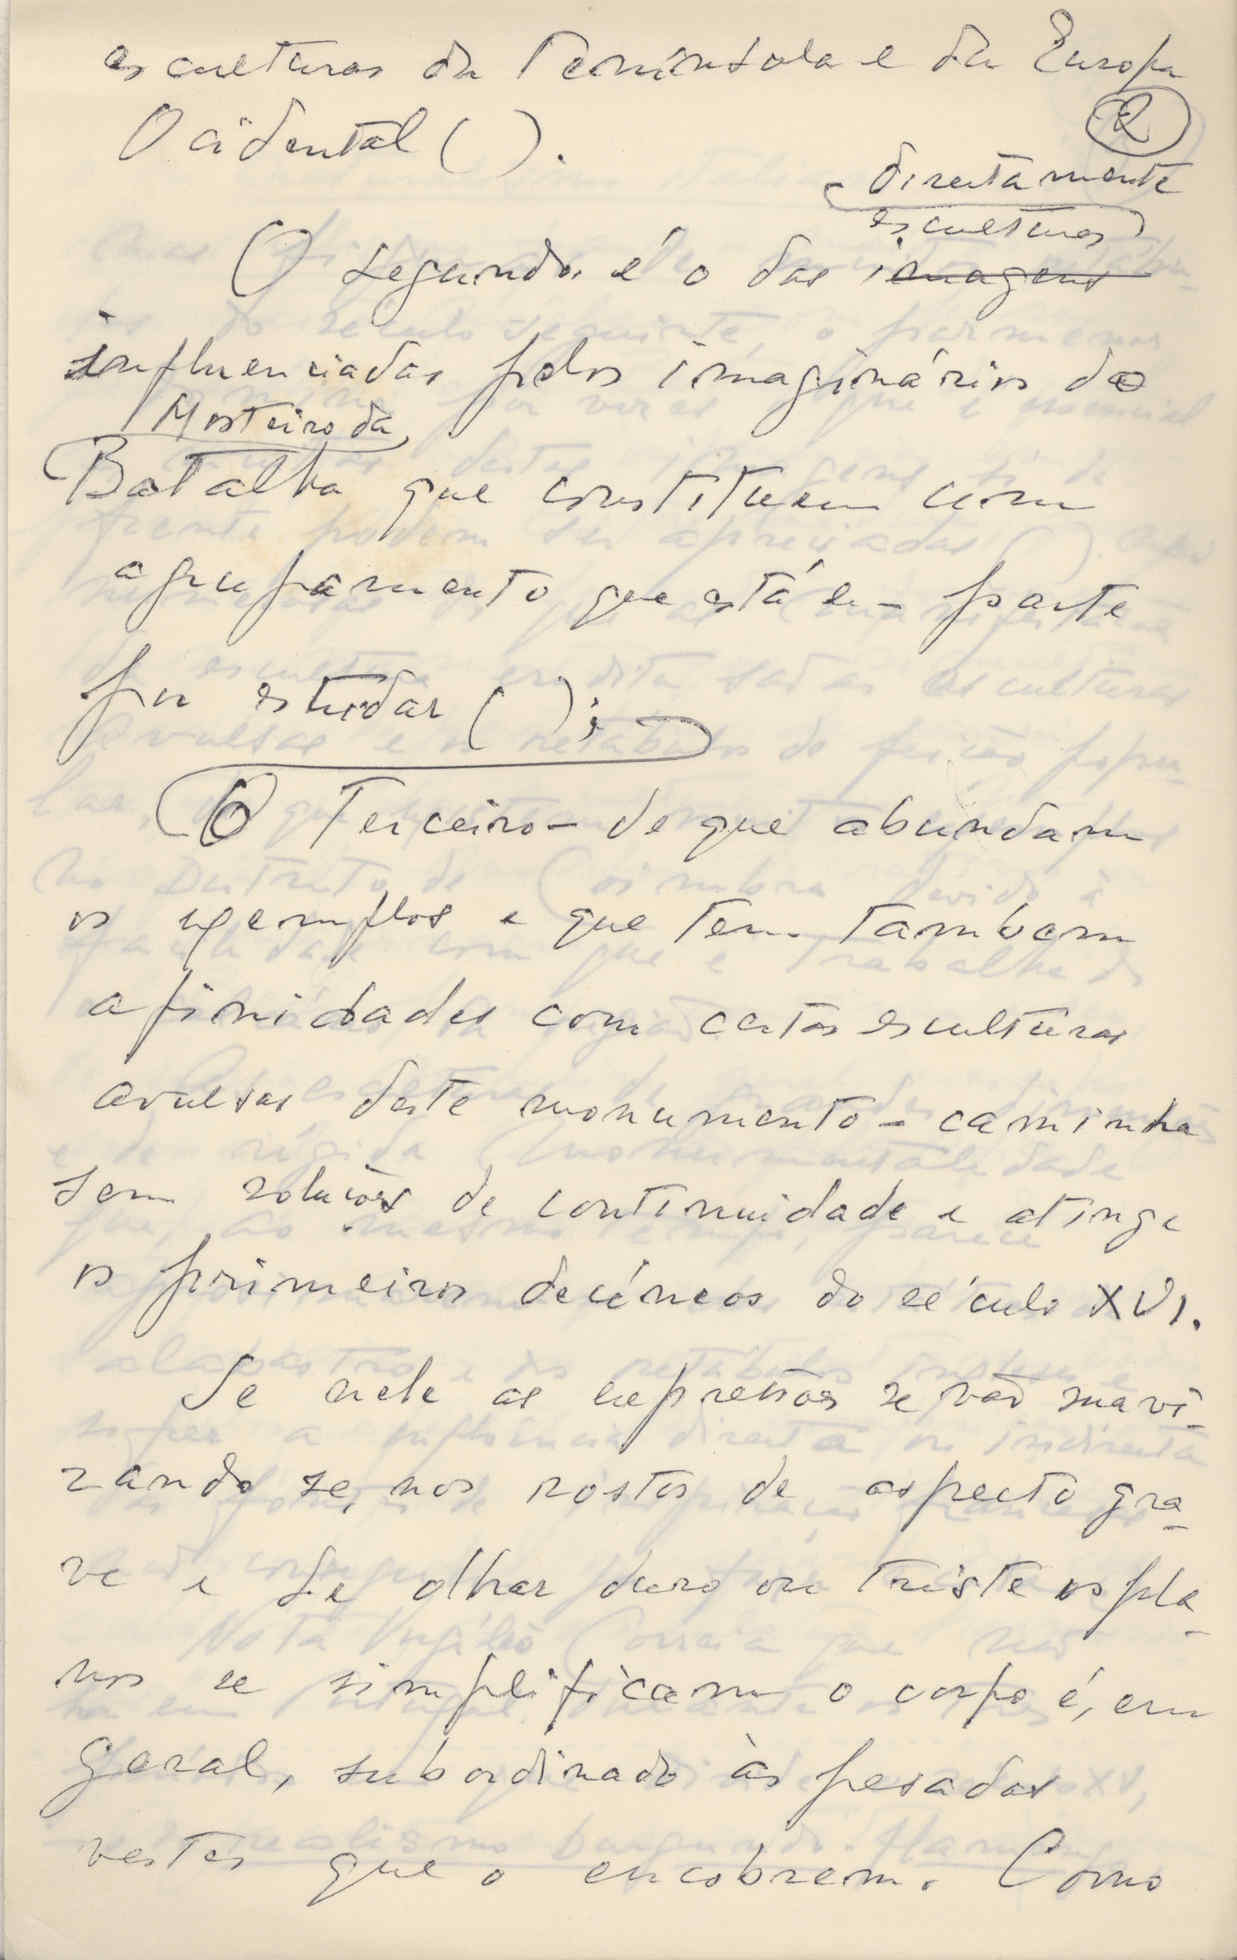 as culturas da Peninsola e da Europa
2
Ocidental ( ).
directamente
esculturas
O segundo é o das imagens
influenciadas pelos imaginários do
Mosteiro da
Batalha que constituem um
agrupamento que está em parte
por estudar ( );
O Terceiro - de que abundam
os exemplos e que tem tambem
afinidades com certas esculturas
avulsas deste monumento - caminha
sem soluções de continuidade e atinge
os primeiros decéneos do século XVI.
Se nele as expressões se vão suavi-
zando se, nos rostos de aspecto gra-
ve e de olhar duro ou triste os pla-
nos se simplificam o corpo é, em
geral, subordinado às pesadas
vestes que o encobrem. Como